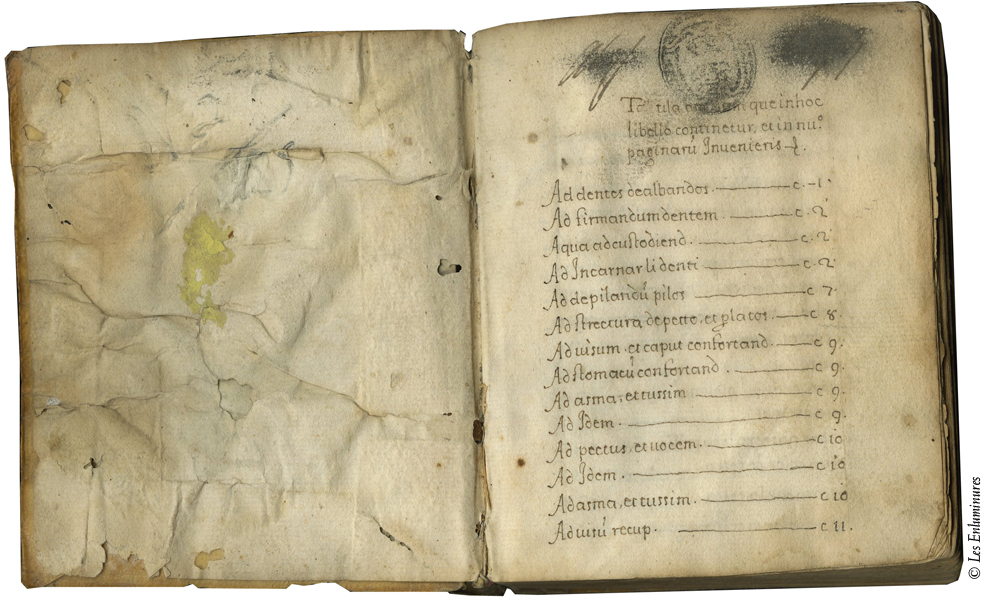 Tabula que in hoc
libello continetur, et in nu.º
paginarū Invenieris
Ad dentes dealbandos. c. 1.
Ad firmandum dentem. c. 2
Aqua ad custodiend. c. 2
Ad Incarnar li denti c. 2
Ad depilandū pilos c 7.
Ad strectura de petto, et platos. c 8.
Ad uisum. et caput confortand. c 9.
Ad stomacū confortand. c 9.
Ad asma, et tussim c 9.
Ad Idem. c 9.
Ad pectus, et uocem. c 10
Ad Idem. c 10
Ad asma, et tussim. c 10
Ad uisū recup. c 11.
© Les Enluminures